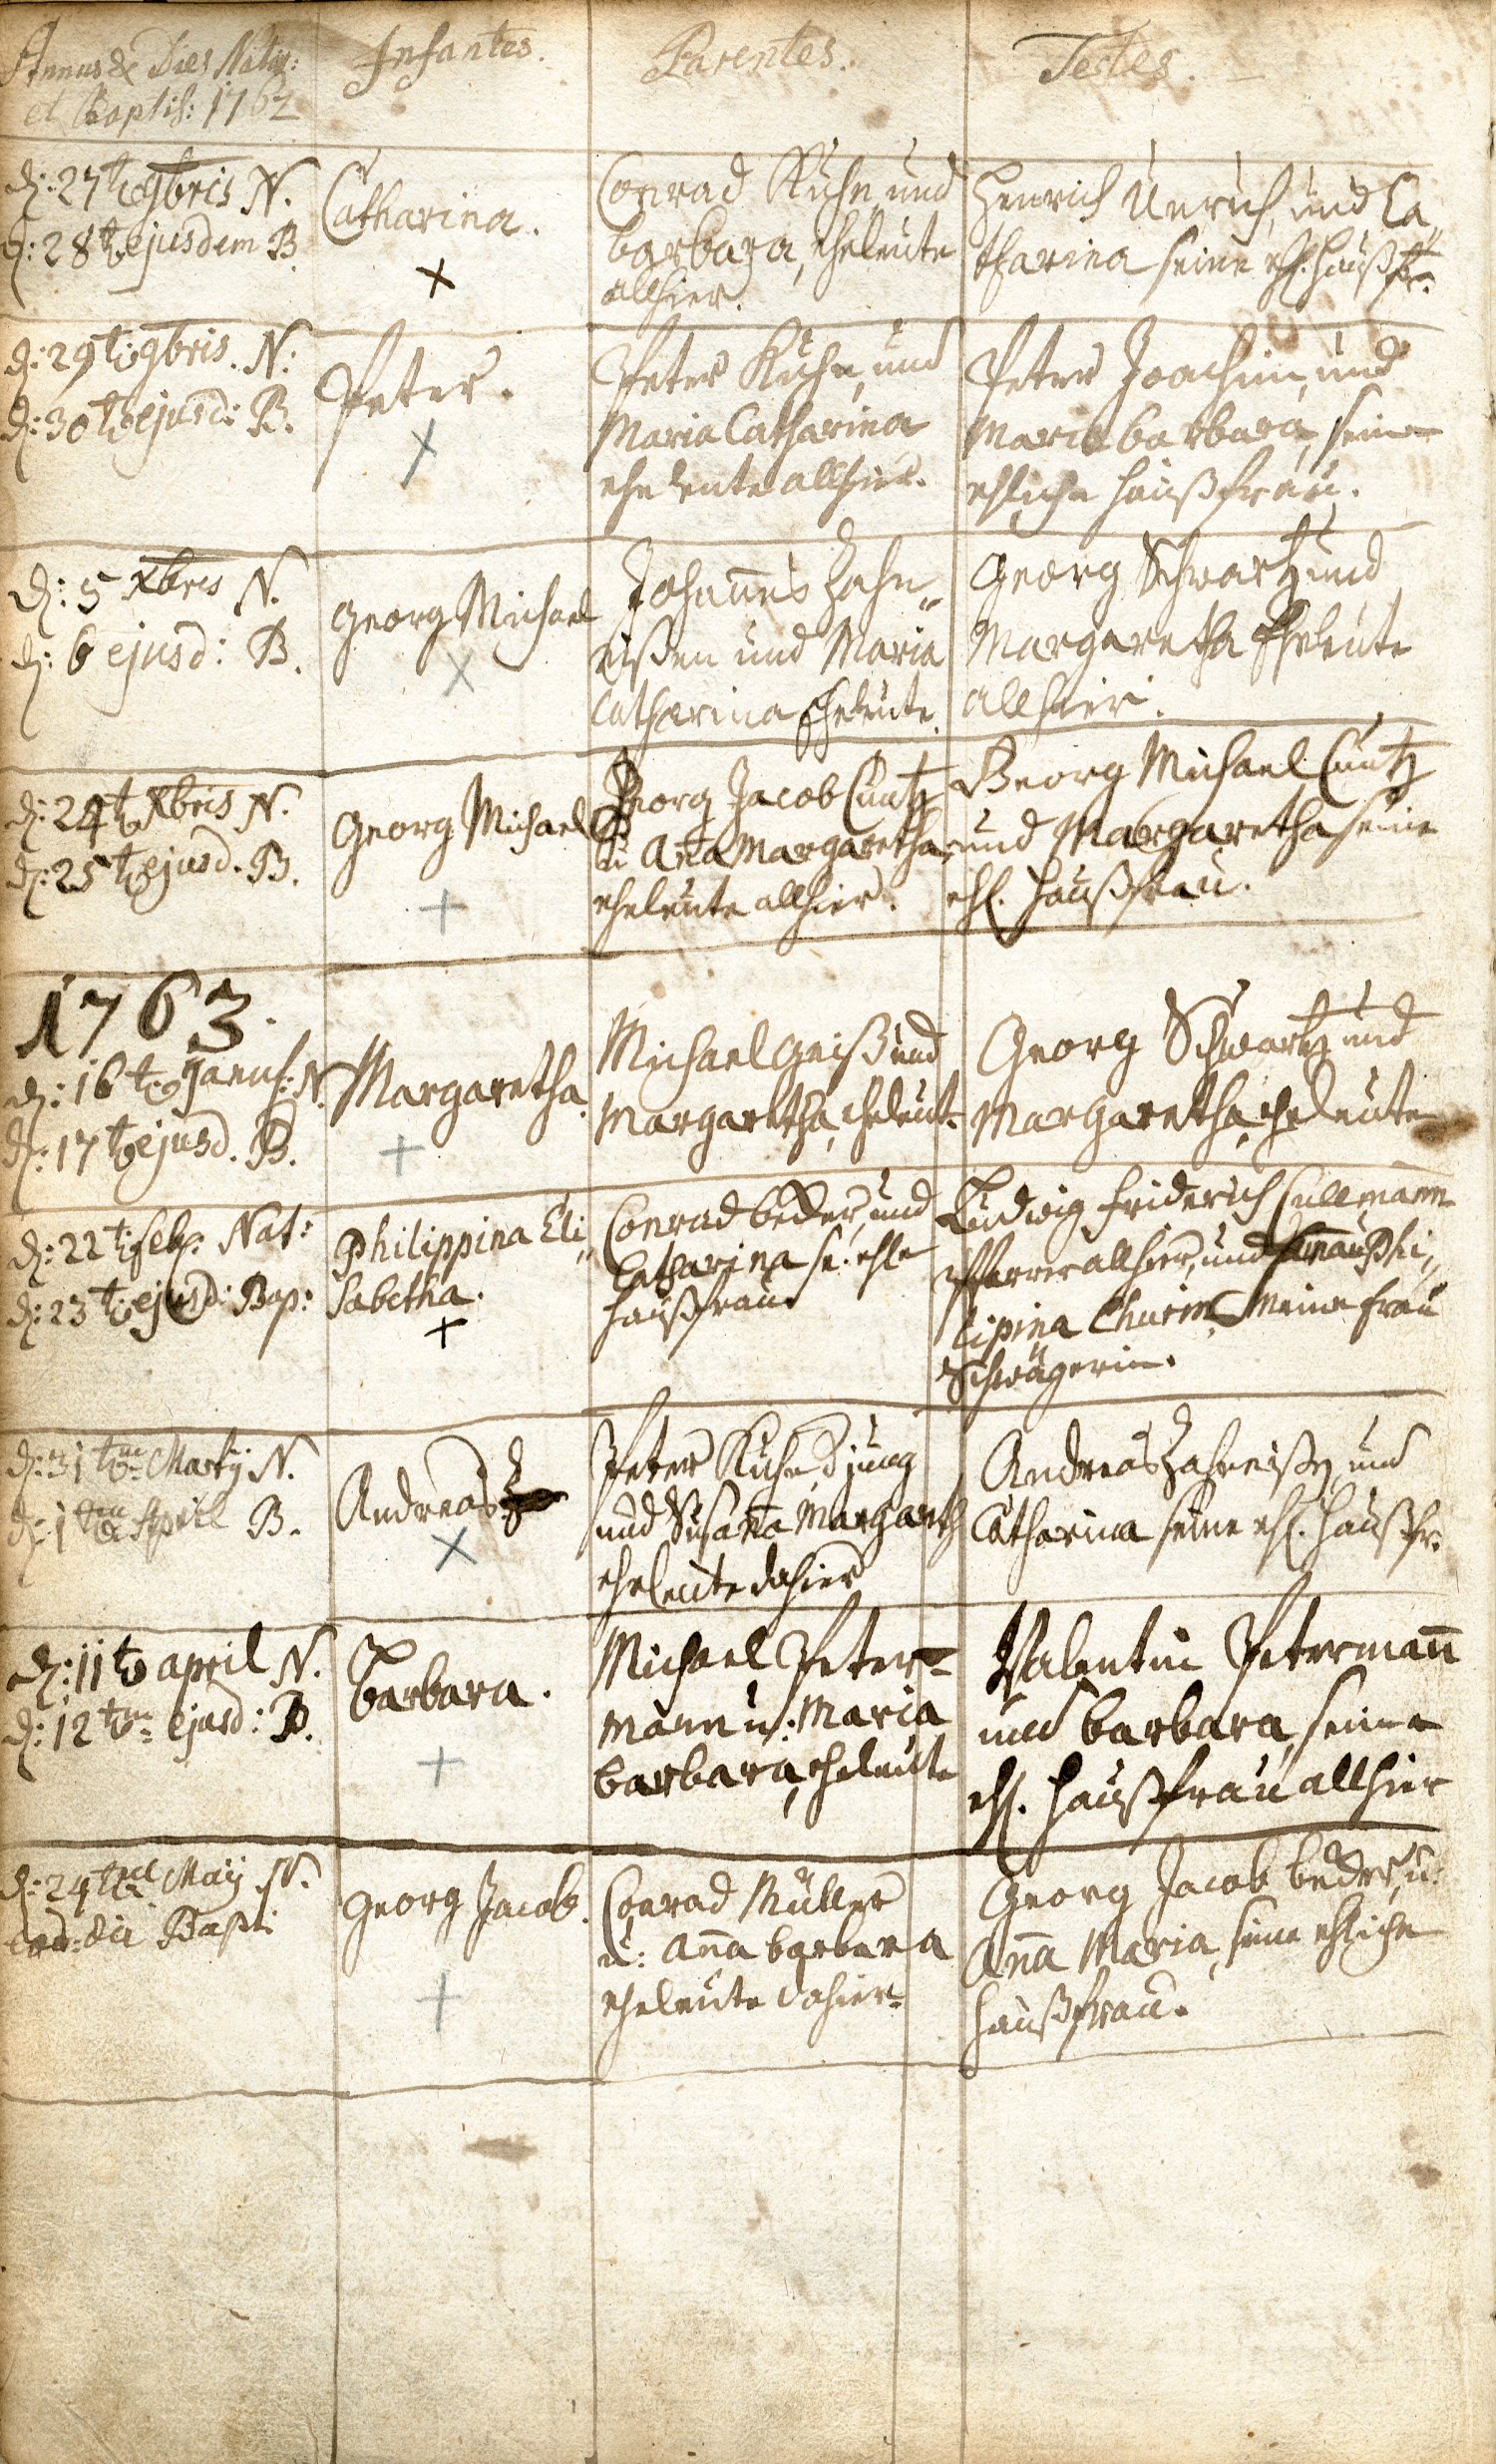 Annus & Dies Nativ: Infantes. Parentes. Testes.
et Baptis: 1762
d: 27t 9bris N.
d: 28t ejusdem B.
Catharina.
Conrad Kuhn und
barbara, eheleute
allhier.
Henrich Unrich, und Ca„
tharina seine ehl. haußfr.
d: 29t 9bris. N:
d: 30t ejusd: B.
Peter.
Peter Kuhn, und
Maria Catharina
eheleute allhier.
Peter Joachim, und
Maria barbara, seine
ehliche haußfrau.
d: 5 Xbris N.
d: 6 ejusd: B.
Georg Michael
Johannes Zahn„
eißen und Maria
Catharina Eheleute.
Georg Schwartz und
Margaretha Eheleute
allhier.
d: 24t Xbris N.
d: 25t ejusd. B.
Georg Michael
Georg Jacob Cuntz
u. Aña Margaretha,
eheleute allhier.
Georg Michael Cuntz
und Margaretha seine
ehl. haußfrau.
1763.
d: 16t Januj: N.
d: 17t ejusd. B.
Margaretha.
Michael Geiß und
Margaretha, eheleut.
Georg Schwartz und
Margaretha, eheleute
d: 22t febr: Nat:
d: 23t ejusd: Bap:
Philippina Eli„
sabetha.
Conrad beder, und
Catharina se. ehle
haußfrau
Ludwig friderich Cullmann
Pfarrer allhier, und frau Phi„
lipina meine frau
Schwägerin.
d: 31t Martij N.
d: 1t April B.
Andreas
Peter Kuhn, d jung
und Susaña Margareth
eheleute dahier
Andreas Zahneißen, und
Catharina seine ehl. haußfr.
d: 11t april N.
d: 12t ejusd: B.
barbara.
Michael Peter=
mann u: Maria
barbara, eheleute
Valentin Petermañ
und barbara, seine
ehl. haußfrau allhier
d: 24t Maij N.
eod: die Bapt:
Georg Jacob.
Conrad Müller
u: Aña barbara
eheleute dahier.
Georg Jacob beder, u.
Aña Maria, seine ehliche
haußfrau.